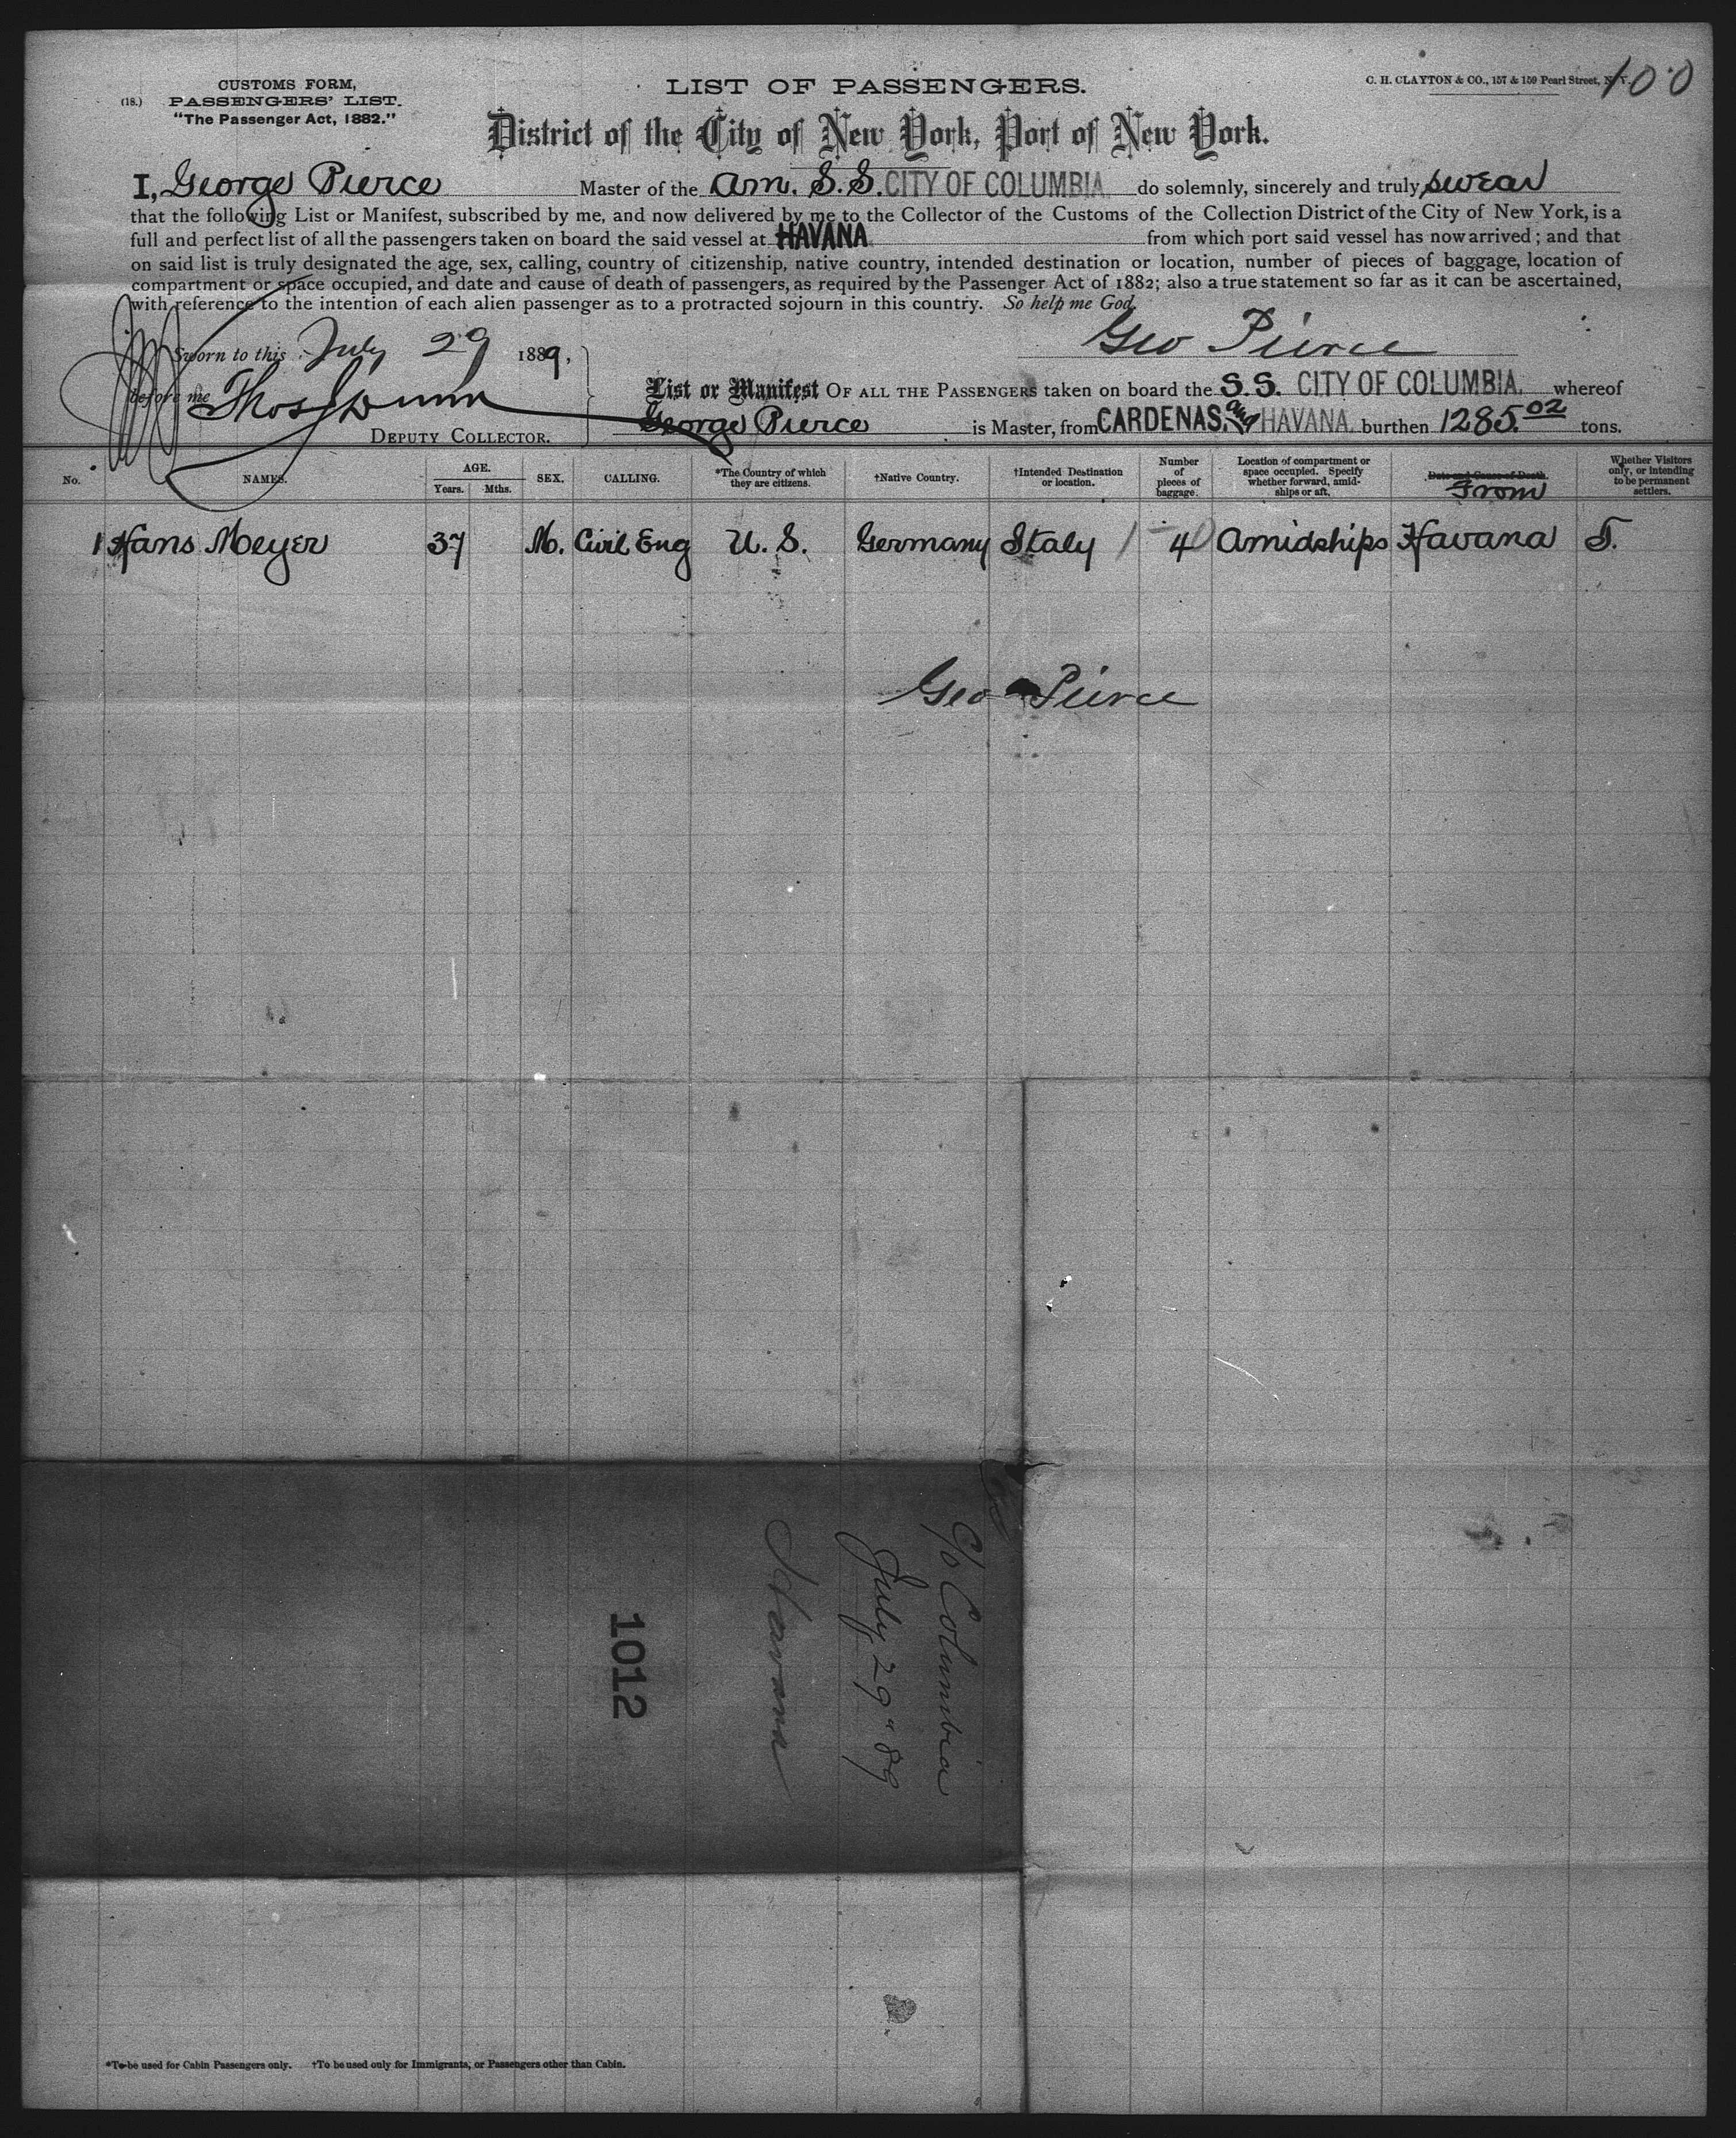 CUSTOMS FORM,
(18.) PASSENGERS' LIST.
"The Passenger Act, 1882."
LIST OF PASSENGERS.
C. H. CLAYTON & CO., 157 & 159 Pearl Street, N.Y.
100
District of the City of New York, Port of New York.
I, George Pierce Master of the Am. S.S. CITY OF COLUMBIA do solemnly, sincerely and truly swear
that the following List or Manifest, subscribed by me, and now delivered by me to the Collector of the Customs of the Collection District of the City of New York, is a
full and perfect list of all the passengers taken on board the said vessel at HAVANA from which port said vessel has now arrived; and that
on said list is truly designated the age, sex, calling, country of citizenship, native country, intended destination or location, number of pieces of baggage, location of
compartment or space occupied, and date and cause of death of passengers, as required by the Passenger Act of 1882; also a true statement so far as it can be ascertained,
with reference to the intention of each alien passenger as to a protracted sojourn in this country. So help me God.
Sworn to this July 29 1889,
Geo Pierce
before me Thos Dunn
DEPUTY COLLECTOR.
List or Manifest OF ALL THE PASSENGERS taken on board the S.S. CITY OF COLUMBIA. whereof
George Pierce is Master, from CARDENAS. and HAVANA. burthen 1285.02 tons.
No. NAMES. AGE. Years. Mths. SEX. CALLING. *The Country of which they are citizens. †Native Country. †Intended Destination or location. Number of pieces of baggage. Location of compartment or space occupied. Specify whether forward, amidships or aft. Date and Cause of Death. From Whether Visitors only, or intending to be permanent settlers.
1 Hans Meyer 37 M. Civil Eng U. S. Germany Italy 1 4 Amidships Havana T.
Geo Pierce
C/o Columbia
July 29" 89
Havana
1012
*To be used for Cabin Passengers only. †To be used only for Immigrants, or Passengers other than Cabin.